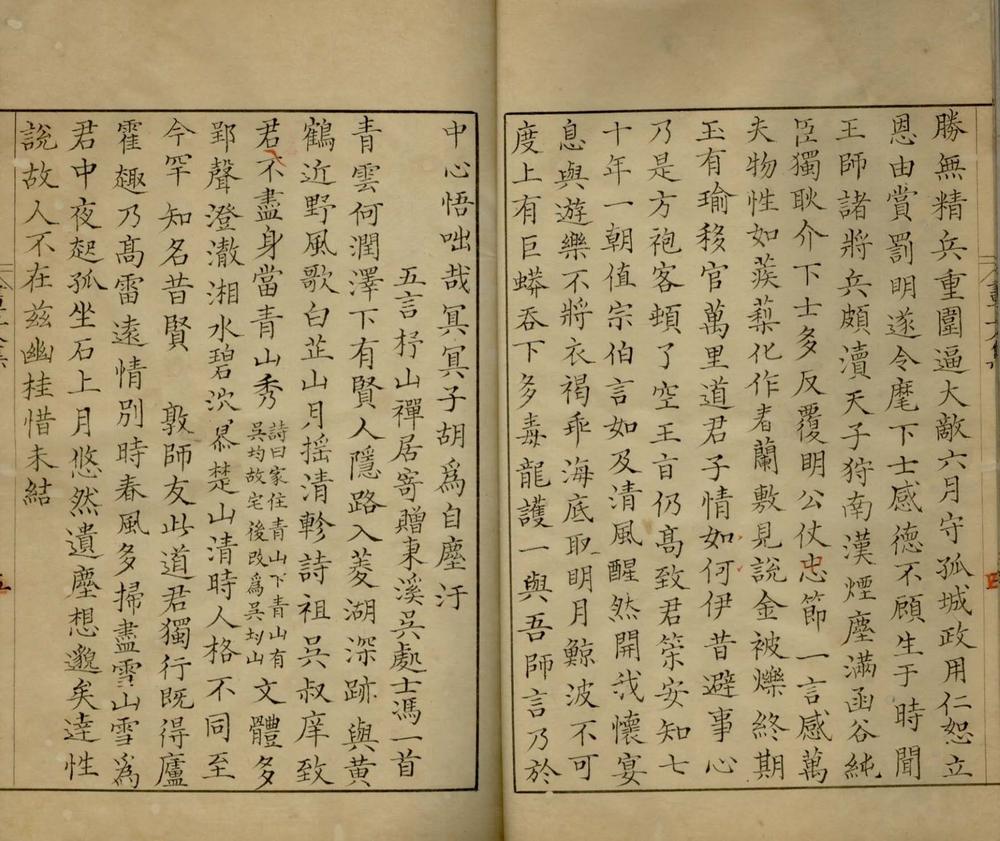 勝無精兵重圍逼大敵六月守孤城政用仁恕立
恩由賞罰明遂令麾下士感德不顧生于時聞
王師諸將兵頗瀆天子狩南漢煙塵滿函谷純
臣獨耿介下士多反覆明公仗忠節一言感萬
夫物性如蒺藜化作春蘭敷見說金被爍終期
玉有瑜移官萬里道君子情如何伊昔避事心
乃是方袍客頓了空王旨仍高致君策安知七
十年一朝值宗伯言如及清風醒然開我懷宴
息與遊樂不將衣褐乖海底取明月鯨波不可
度上有巨蟒吞下多毒龍護一與吾師言乃於
中心悟咄哉冥冥子胡為自塵汙
五言杼山禪居寄贈東溪吳處士馮一首
青雲何潤澤下有賢人隱路入菱湖深跡與黃
鶴近野風歌白芷山月搖清軫詩祖吳叔庠致
君不盡身當青山秀詩曰家住青山下青山有吳均故宅後改為吳均山文體多
郢聲澄澈湘水碧泬㵳楚山清時人格不同至
今罕知名昔賢敦師友此道君獨行既得廬
霍趣乃高雷遠情別時春風多掃盡雪山雪為
君中夜起孤坐石上月悠然遺塵想邈矣達性
說故人不在茲幽桂惜未結